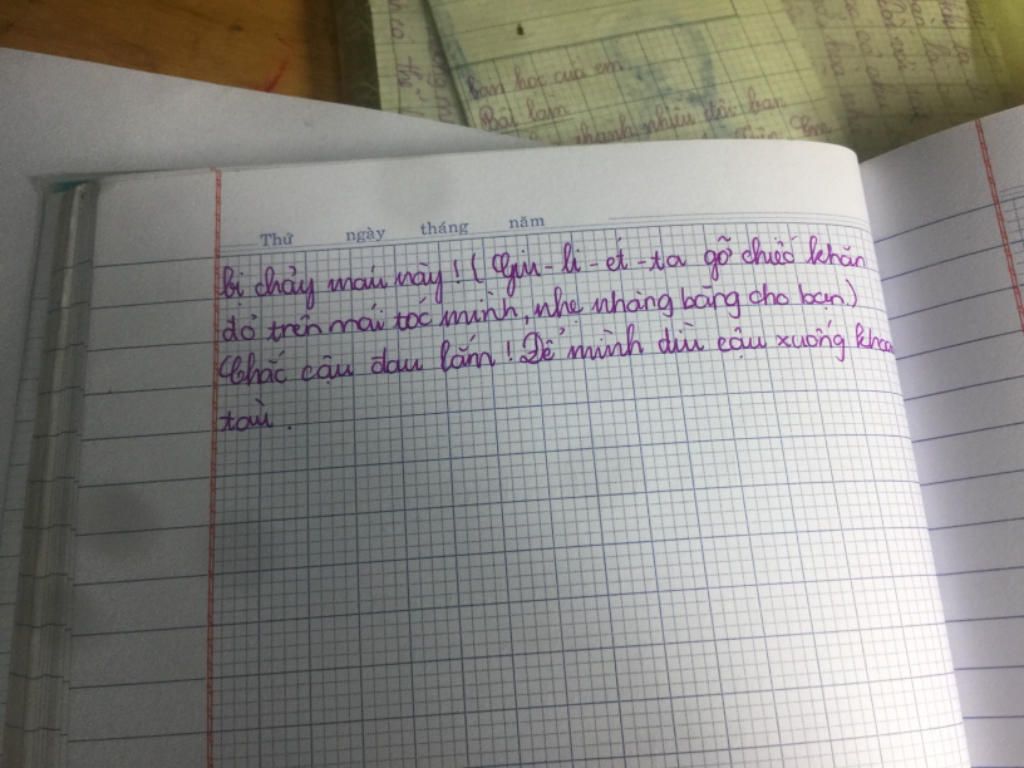 bạn học của em
Bài làm
nhiều đức bạn
Thứ ngày tháng năm
bị chảy máu này! (Giu-li-ét-ta gỡ chiếc khăn
đỏ trên mái tóc mình, nhẹ nhàng băng cho bạn)
Chắc cậu đau lắm! Để mình dìu cậu xuống khoan
tàu.